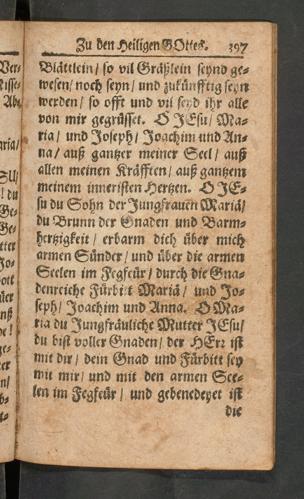 Zu den Heiligen GOttes. 397
Blättlein / so vil Gräßlein seynd ge-
wesen / noch seyn / und zukünfftig seyn
werden / so offt und vil seyd ihr alle
von mir gegrüsset. O JEsu / Ma-
ria / und Joseph / Joachim und An-
na / auß gantzer meiner Seel / auß
allen meinen Kräfften / auß gantzem
meinem innersten Hertzen. O JE-
su du Sohn der Jungfrauen Mariä /
du Brunn der Gnaden und Barm-
hertzigkeit / erbarm dich über mich
armen Sünder / und über die armen
Seelen im Fegfeür / durch die Gna-
denreiche Fürbitt Mariä / und Jo-
seph / Joachim und Anna. O Ma-
ria du Jungfräuliche Mutter JEsu /
du bist voller Gnaden / der HErr ist
mit dir / dein Gnad und Fürbitt sey
mit mir / und mit den armen See-
len im Fegfeür / und gebenedeyet ist
die